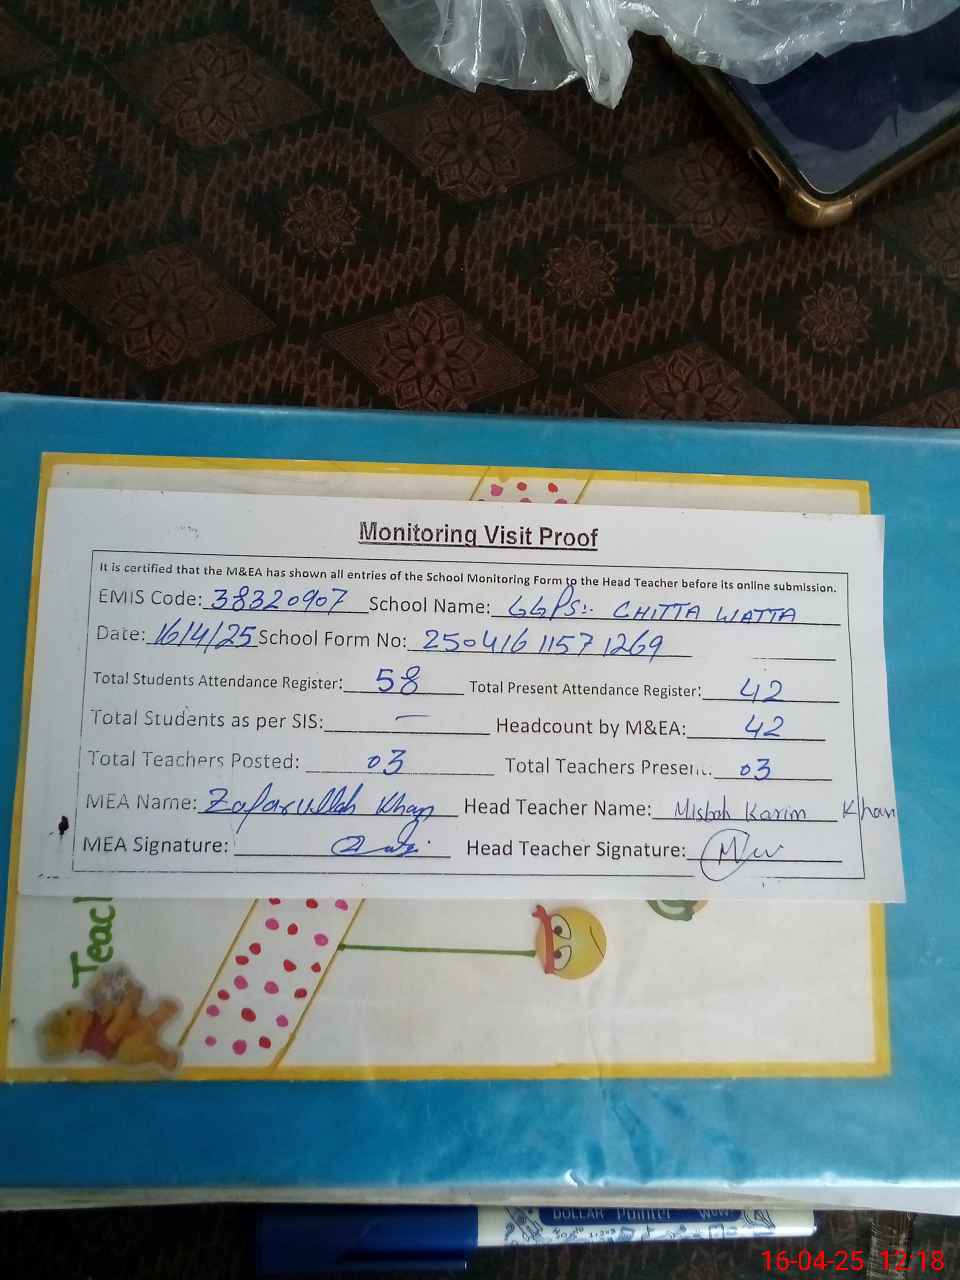 Monitoring Visit Proof
It is certified that the M&EA has shown all entries of the School Monitoring Form to the Head Teacher before its online submission.
EMIS Code: 38320907 School Name: GGPS:. CHITTA WATTA
Date: 16/4/25 School Form No: 250416 1157 1269
Total Students Attendance Register: 58 Total Present Attendance Register: 42
Total Students as per SIS: — Headcount by M&EA: 42
Total Teachers Posted: 03 Total Teachers Present: 03
MEA Name: Zafarullah Khan Head Teacher Name: Misbah Karim Khan
MEA Signature: Head Teacher Signature:
Teac
DOLLAR Pointer WOW!
16-04-25 12:18